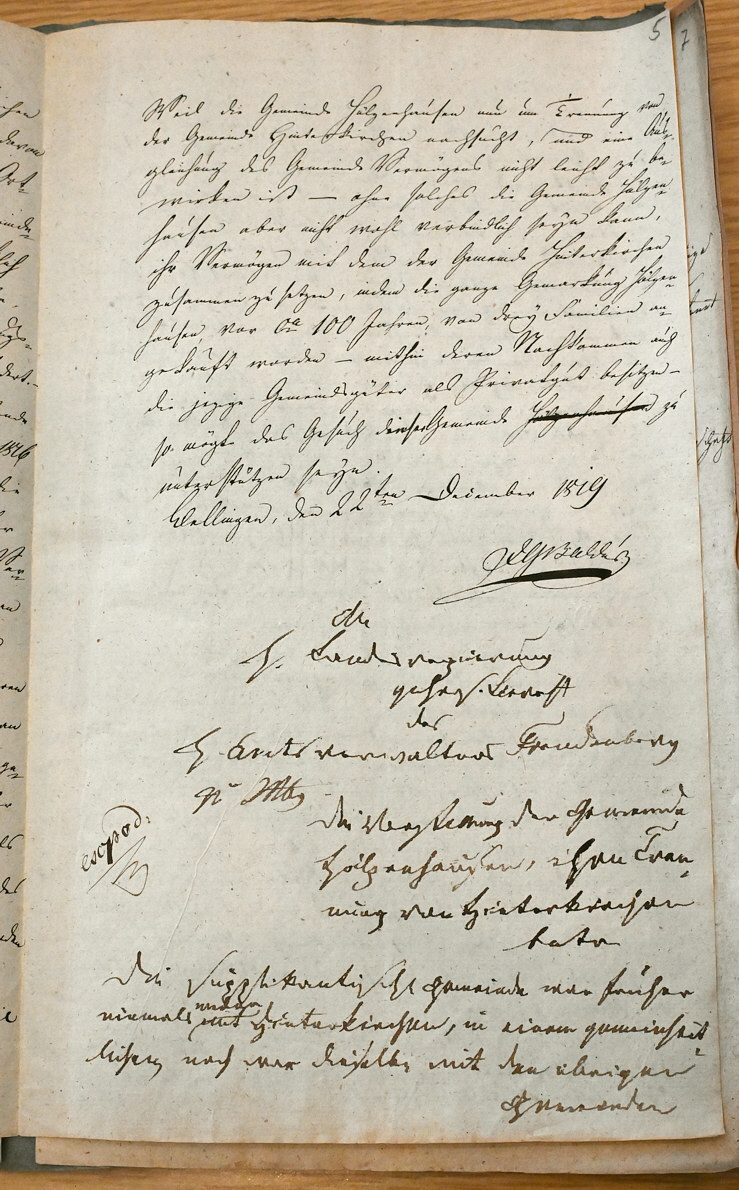 5
7
Weil die Gemeinde Hölzenhausen nun um Trennung von
der Gemeinde Hinterkirchen nachsucht, und eine Aus-
gleichung des Gemeinde Vermögens nicht leicht zu be-
wirken ist — ohne solches die Gemeinde Hölzen-
hausen aber nicht wohl verbindlich seyn kann,
ihr Vermögen mit dem der Gemeinde Hinterkirchen
zusammen zu setzen, indem die ganze Gemarkung Hölzen-
hausen, vor ca 100 Jahren, von drey Familien an-
gekauft worden — mithin deren Nachkommen auch
die jezige Gemeindsgüter als Privatgut besitzen —
so mögte das Gesuch dieser Gemeinde Hölzenhausen zu
unterstützen seyn.
Wellingen, den 22ten December 1819
An
H. Landesregierung
gehors. Bericht
des
H. Amtsverwalters Freudenberg
expod:
die Vorstellung der Gemeinde
Hölzenhausen, ihre Tren-
nung von Hinterkirchen
betr
Die supplikantische Gemeinde war früher
niemals weder mit Hinterkirchen, in einem gemeinheit-
lichen noch war dieselbe mit den übrigen
Gemeinden